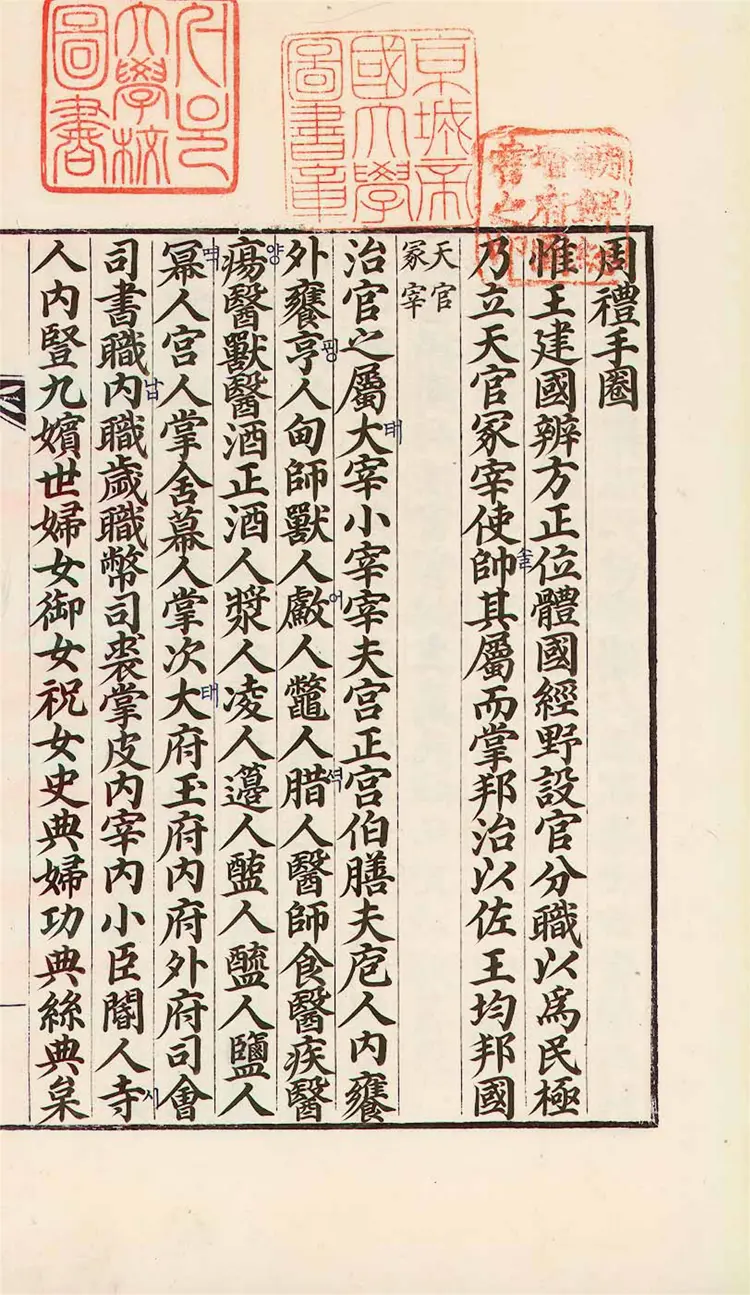 서울大學校圖書
京城帝國大學圖書章
朝鮮總督府圖書之印
周禮手圈
惟王建國辨方正位體國經野設官分職以爲民極
乃立天官冢宰使帥솔其屬而掌邦治以佐王均邦國
天官
冢宰
治官之屬大태宰小宰宰夫宮正宮伯膳夫庖人內饔
外饔亨팽人甸師獸人䱷어人鼈人腊셕人醫師食醫疾醫
瘍양醫獸醫酒正酒人漿人凌人籩人醢人醯人鹽人
冪멱人宮人掌舍幕人掌次大태府玉府內府外府司會
司書職內납職歲職幣司裘掌皮內宰內小臣閽人寺시
人內豎九嬪世婦女御女祝女史典婦功典絲典枲